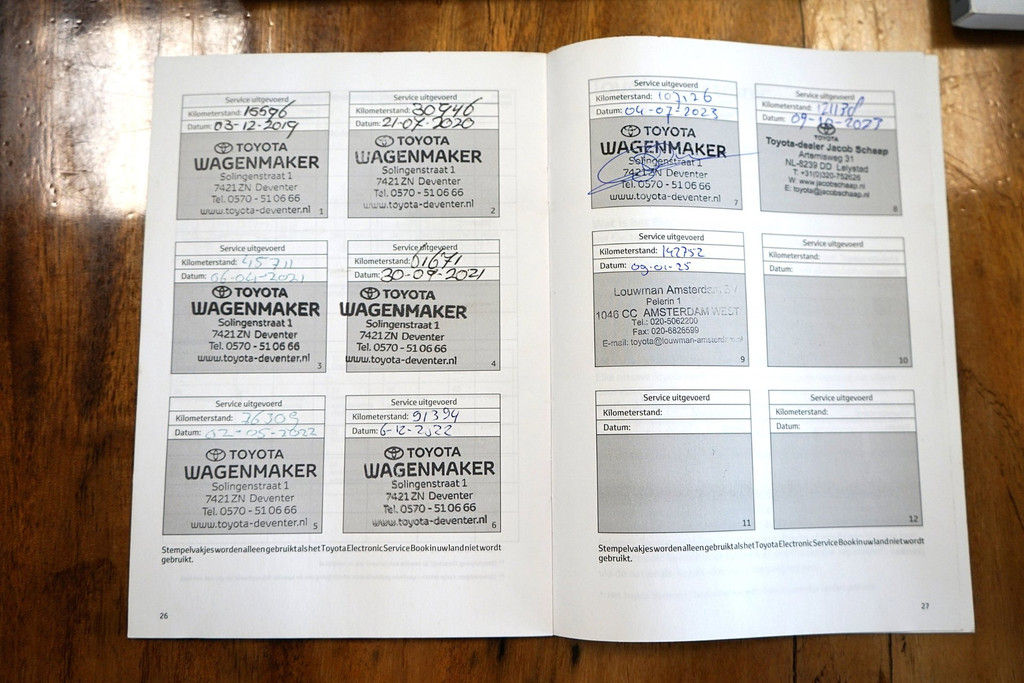 Service uitgevoerd
Kilometerstand: 15596
Datum: 03-12-2019
TOYOTA
WAGENMAKER
Solingenstraat 1
7421 ZN Deventer
Tel. 0570 - 51 06 66
www.toyota-deventer.nl
1
Service uitgevoerd
Kilometerstand: 30946
Datum: 21-07-2020
TOYOTA
WAGENMAKER
Solingenstraat 1
7421 ZN Deventer
Tel. 0570 - 51 06 66
www.toyota-deventer.nl
2
Service uitgevoerd
Kilometerstand: 45711
Datum: 06-04-2021
TOYOTA
WAGENMAKER
Solingenstraat 1
7421 ZN Deventer
Tel. 0570 - 51 06 66
www.toyota-deventer.nl
3
Service uitgevoerd
Kilometerstand: 61671
Datum: 30-09-2021
TOYOTA
WAGENMAKER
Solingenstraat 1
7421 ZN Deventer
Tel. 0570 - 51 06 66
www.toyota-deventer.nl
4
Service uitgevoerd
Kilometerstand: 76309
Datum: 02-05-2022
TOYOTA
WAGENMAKER
Solingenstraat 1
7421 ZN Deventer
Tel. 0570 - 51 06 66
www.toyota-deventer.nl
5
Service uitgevoerd
Kilometerstand: 91394
Datum: 6-12-2022
TOYOTA
WAGENMAKER
Solingenstraat 1
7421 ZN Deventer
Tel. 0570 - 51 06 66
www.toyota-deventer.nl
6
Stempelvakjes worden alleen gebruikt als het Toyota Electronic Service Book in uw land niet wordt
gebruikt.
26
Service uitgevoerd
Kilometerstand: 107126
Datum: 04-07-2023
TOYOTA
WAGENMAKER
Solingenstraat 1
7421 ZN Deventer
Tel. 0570 - 51 06 66
www.toyota-deventer.nl
7
Service uitgevoerd
Kilometerstand: 121138
Datum: 09-12-2023
TOYOTA
Toyota-dealer Jacob Schaap
Artemisweg 31
NL-8239 DD Lelystad
T: +31(0)320-752626
W: www.jacobschaap.nl
E: toyota@jacobschaap.nl
8
Service uitgevoerd
Kilometerstand: 142752
Datum: 09-01-25
Louwman Amsterdam
Pelerin 1
1046 CC AMSTERDAM WEST
Tel.: 020-5062200
Fax: 020-6826599
E-mail: toyota@louwman-amsterdam.nl
9
Service uitgevoerd
Kilometerstand:
Datum:
10
Service uitgevoerd
Kilometerstand:
Datum:
11
Service uitgevoerd
Kilometerstand:
Datum:
12
Stempelvakjes worden alleen gebruikt als het Toyota Electronic Service Book in uw land niet wordt
gebruikt.
27